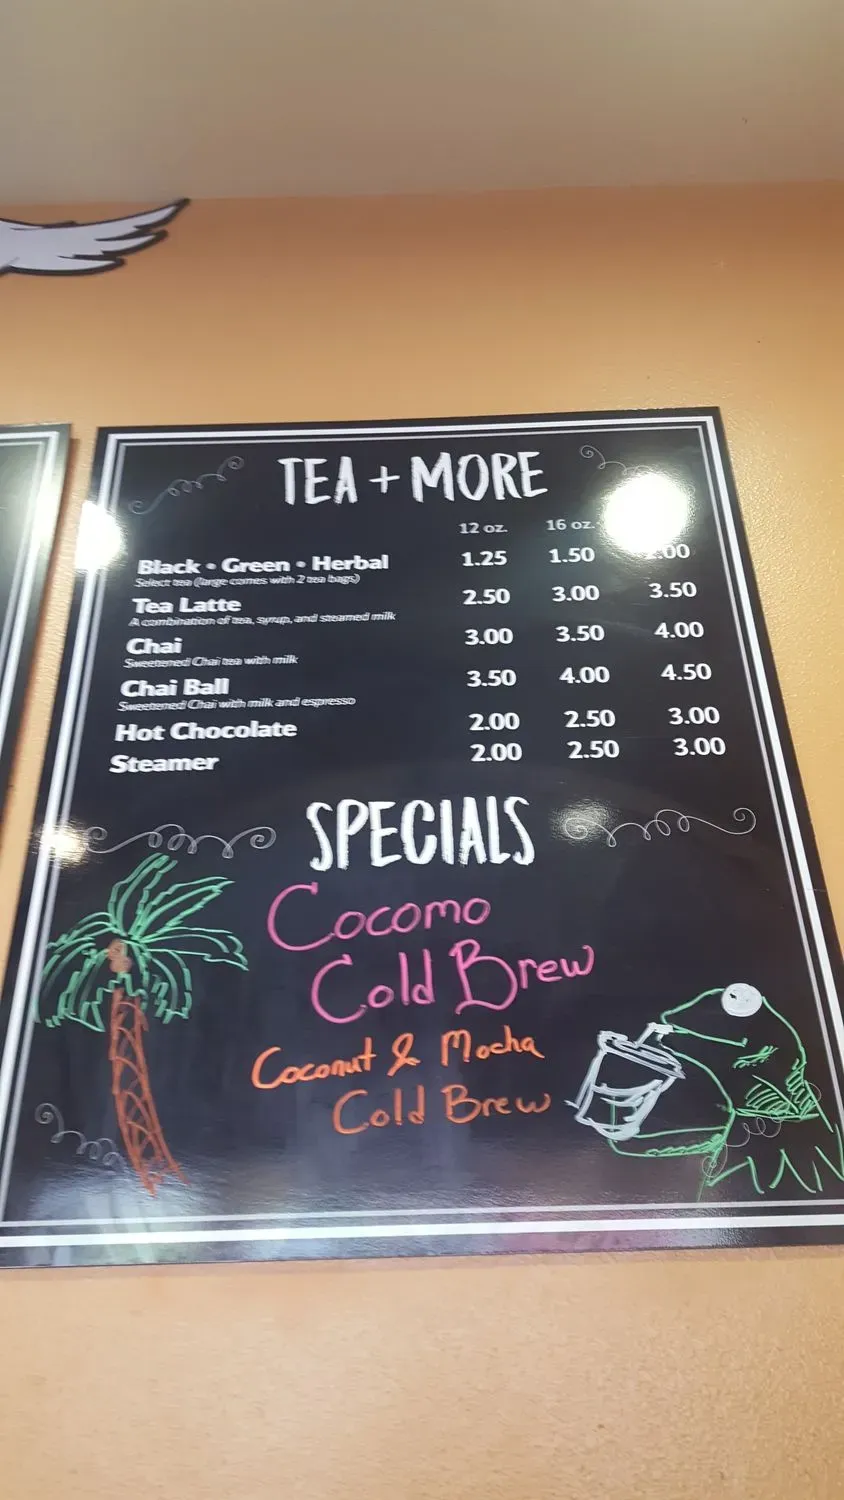 TEA + MORE
12 oz. 16 oz.
Black • Green • Herbal 1.25 1.50
Select tea (large comes with 2 tea bags)
Tea Latte 2.50 3.00 3.50
A combination of tea, syrup, and steamed milk
Chai 3.00 3.50 4.00
Sweetened Chai tea with milk
Chai Ball 3.50 4.00 4.50
Sweetened Chai with milk and espresso
Hot Chocolate 2.00 2.50 3.00
Steamer 2.00 2.50 3.00
SPECIALS
Cocomo
Cold Brew
Coconut & Mocha
Cold Brew